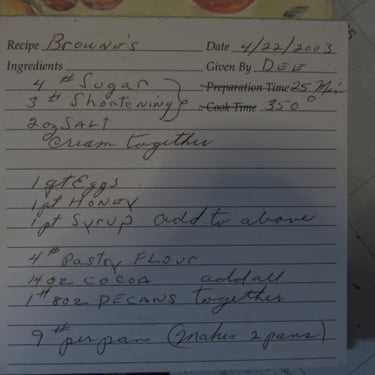 Recipe Browne's Date 4/22/2003
Ingredients Given By DEE
4 # Sugar Preparation Time 25 Min
3 # Shortening Cook Time 350°
2 oz SALT
Cream together
1 qt Eggs
1 pt HONEY
1 pt Syrup add to above
4 # Pastry FLOUR
14 oz COCOA add all
1 # 8oz PECANS together
9 # per pan (makes 2 pans)